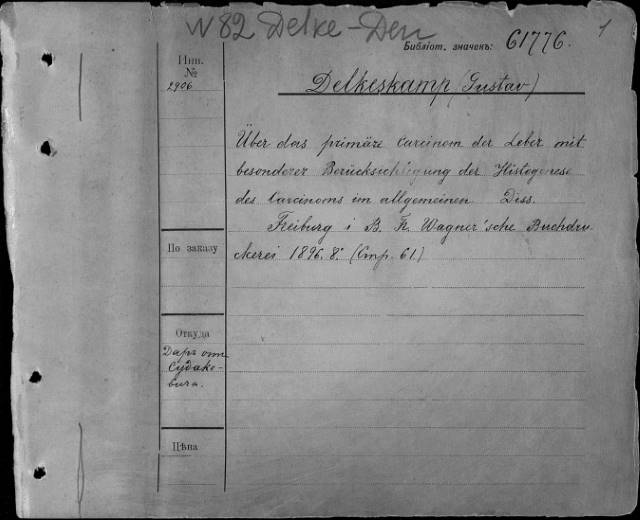 W 82 Delke-Den
1
Библіот. значекъ: 61776.
Инв.
№
2906
Delkeskamp (Gustav)
Über das primäre Carcinom der Leber mit
besonderer Berücksichtigung der Histogenese
des Carcinoms im allgemeinen Diss.
Freiburg i B. K. Wagner'sche Buchdru-
ckerei 1896. 8.° (Стр. 61.)
По заказу
Откуда
Даръ отъ
Судаке-
вича.
Цѣна